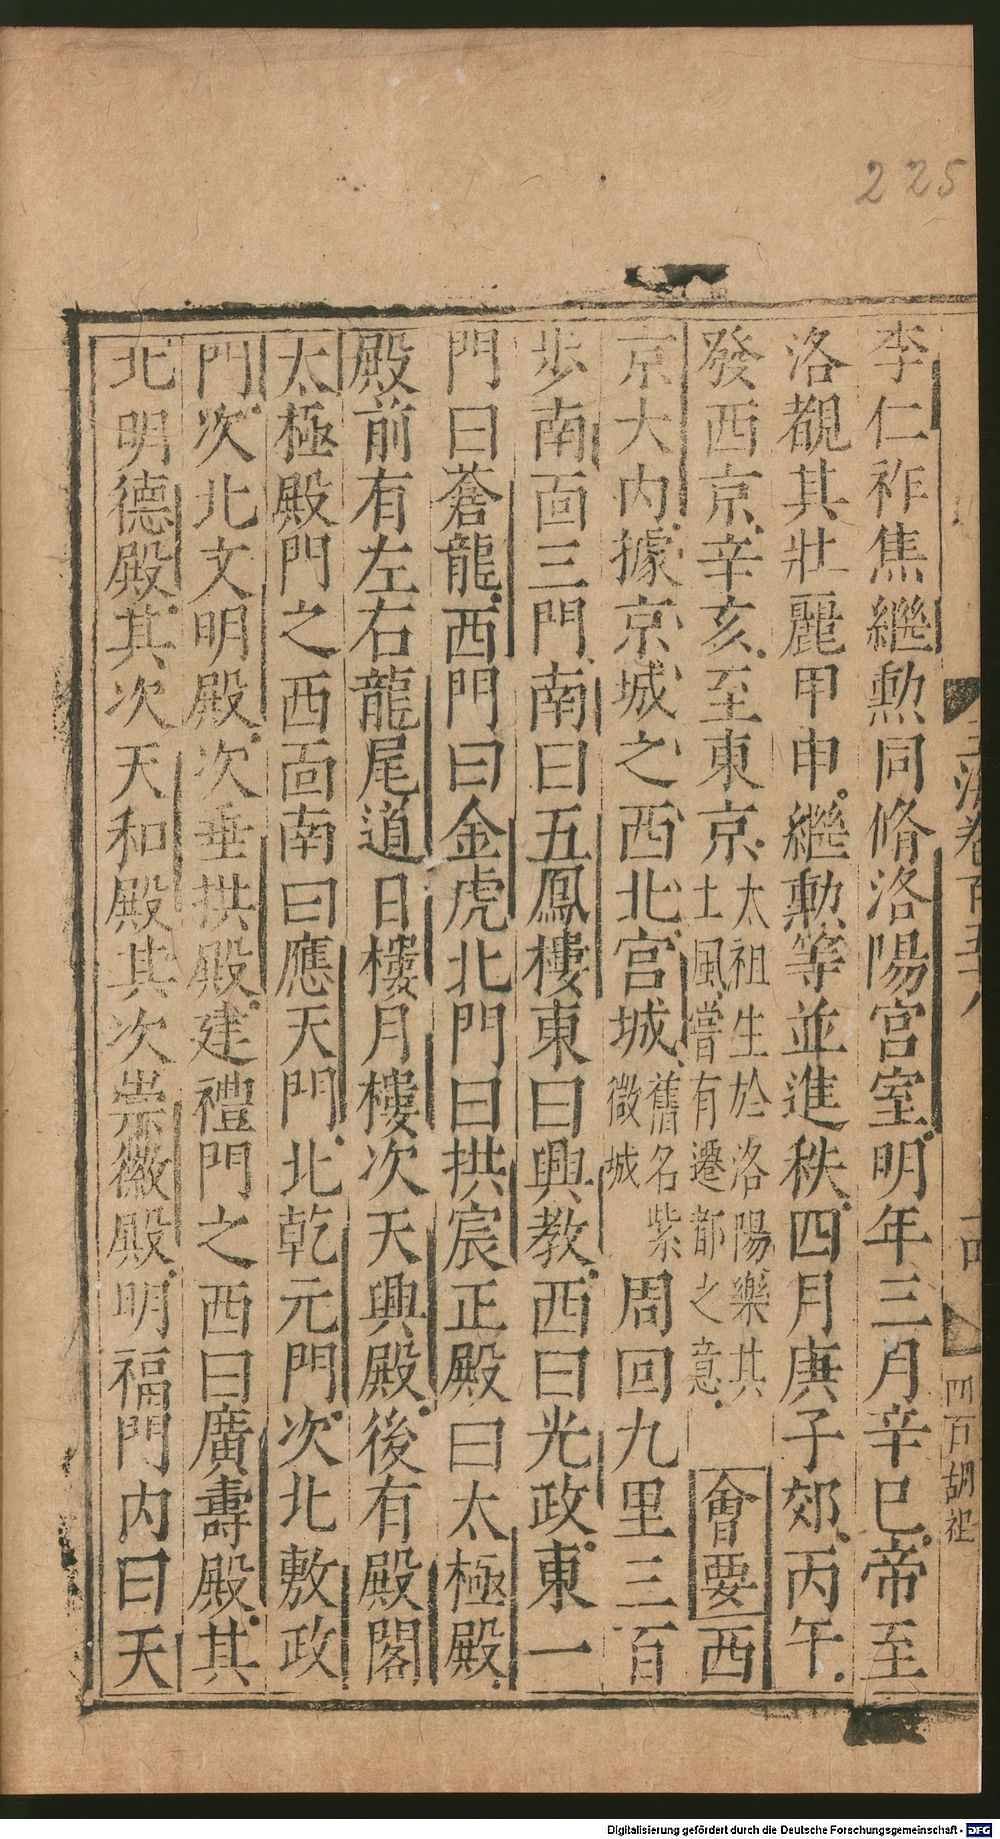 225
李仁祚焦繼勲同脩洛陽宮室明年三月辛巳帝至
洛覩其壯麗甲申繼勲等並進秩四月庚子郊丙午
發西京辛亥至東京太祖生於洛陽樂其土風嘗有遷都之意會要西
京大内據京城之西北宮城舊名紫微城周回九里三百
步南面三門南曰五鳳樓東曰興教西曰光政東一
門曰蒼龍西門曰金虎北門曰拱宸正殿曰太極殿
殿前有左右龍尾道日樓月樓次天興殿後有殿閣
太極殿門之西面南曰應天門北乾元門次北敷政
門次北文明殿次垂拱殿建禮門之西曰廣壽殿其
北明德殿其次天和殿其次崇徽殿明福門内曰天
玉海卷百五十八
四百胡祖
Digitalisierung gefördert durch die Deutsche Forschungsgemeinschaft - DFG